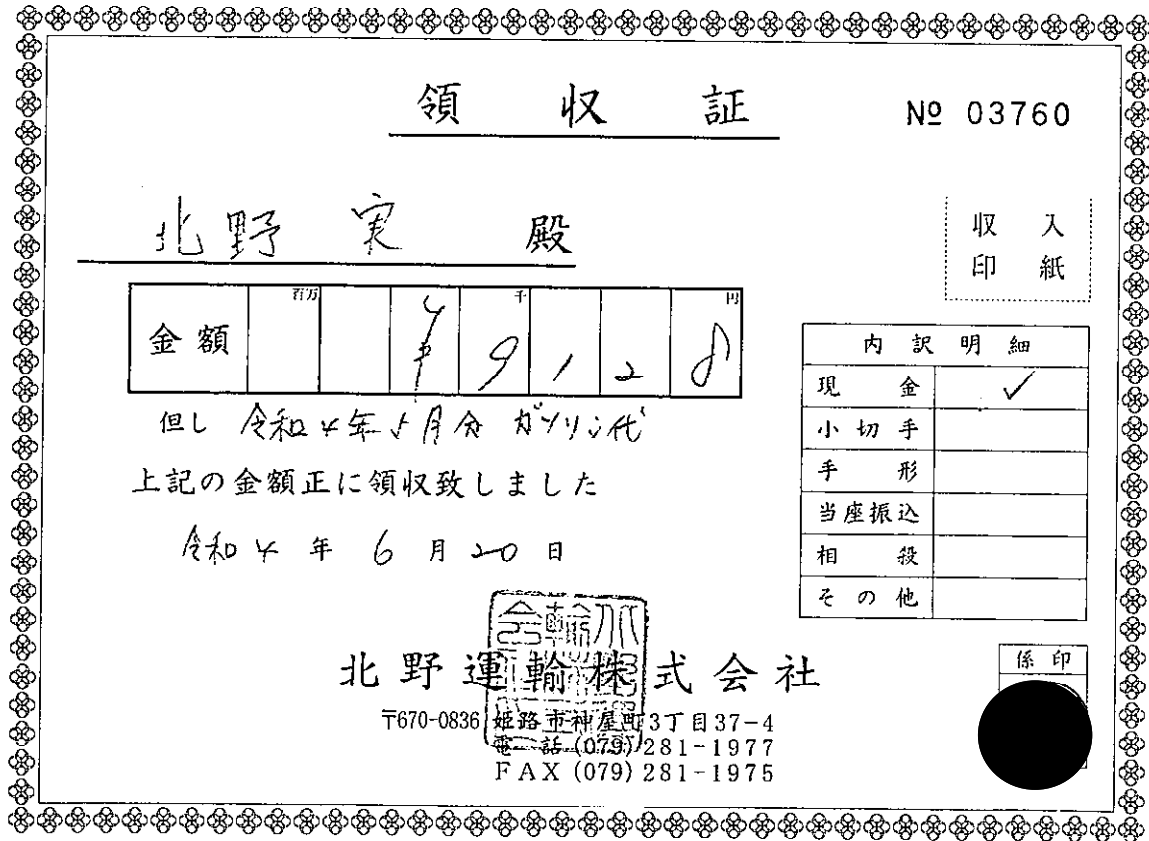 領収証
№ 03760
北野 実 殿
収入
印紙
金額 百万 千 円
¥9128
但し 令和4年5月分 ガソリン代
上記の金額正に領収致しました
令和4年6月20日
内訳明細
現金 ✓
小切手
手形
当座振込
相殺
その他
北野運輸株式会社
〒670-0836 姫路市神屋町3丁目37-4
電話 (079) 281-1977
FAX (079) 281-1975
係印